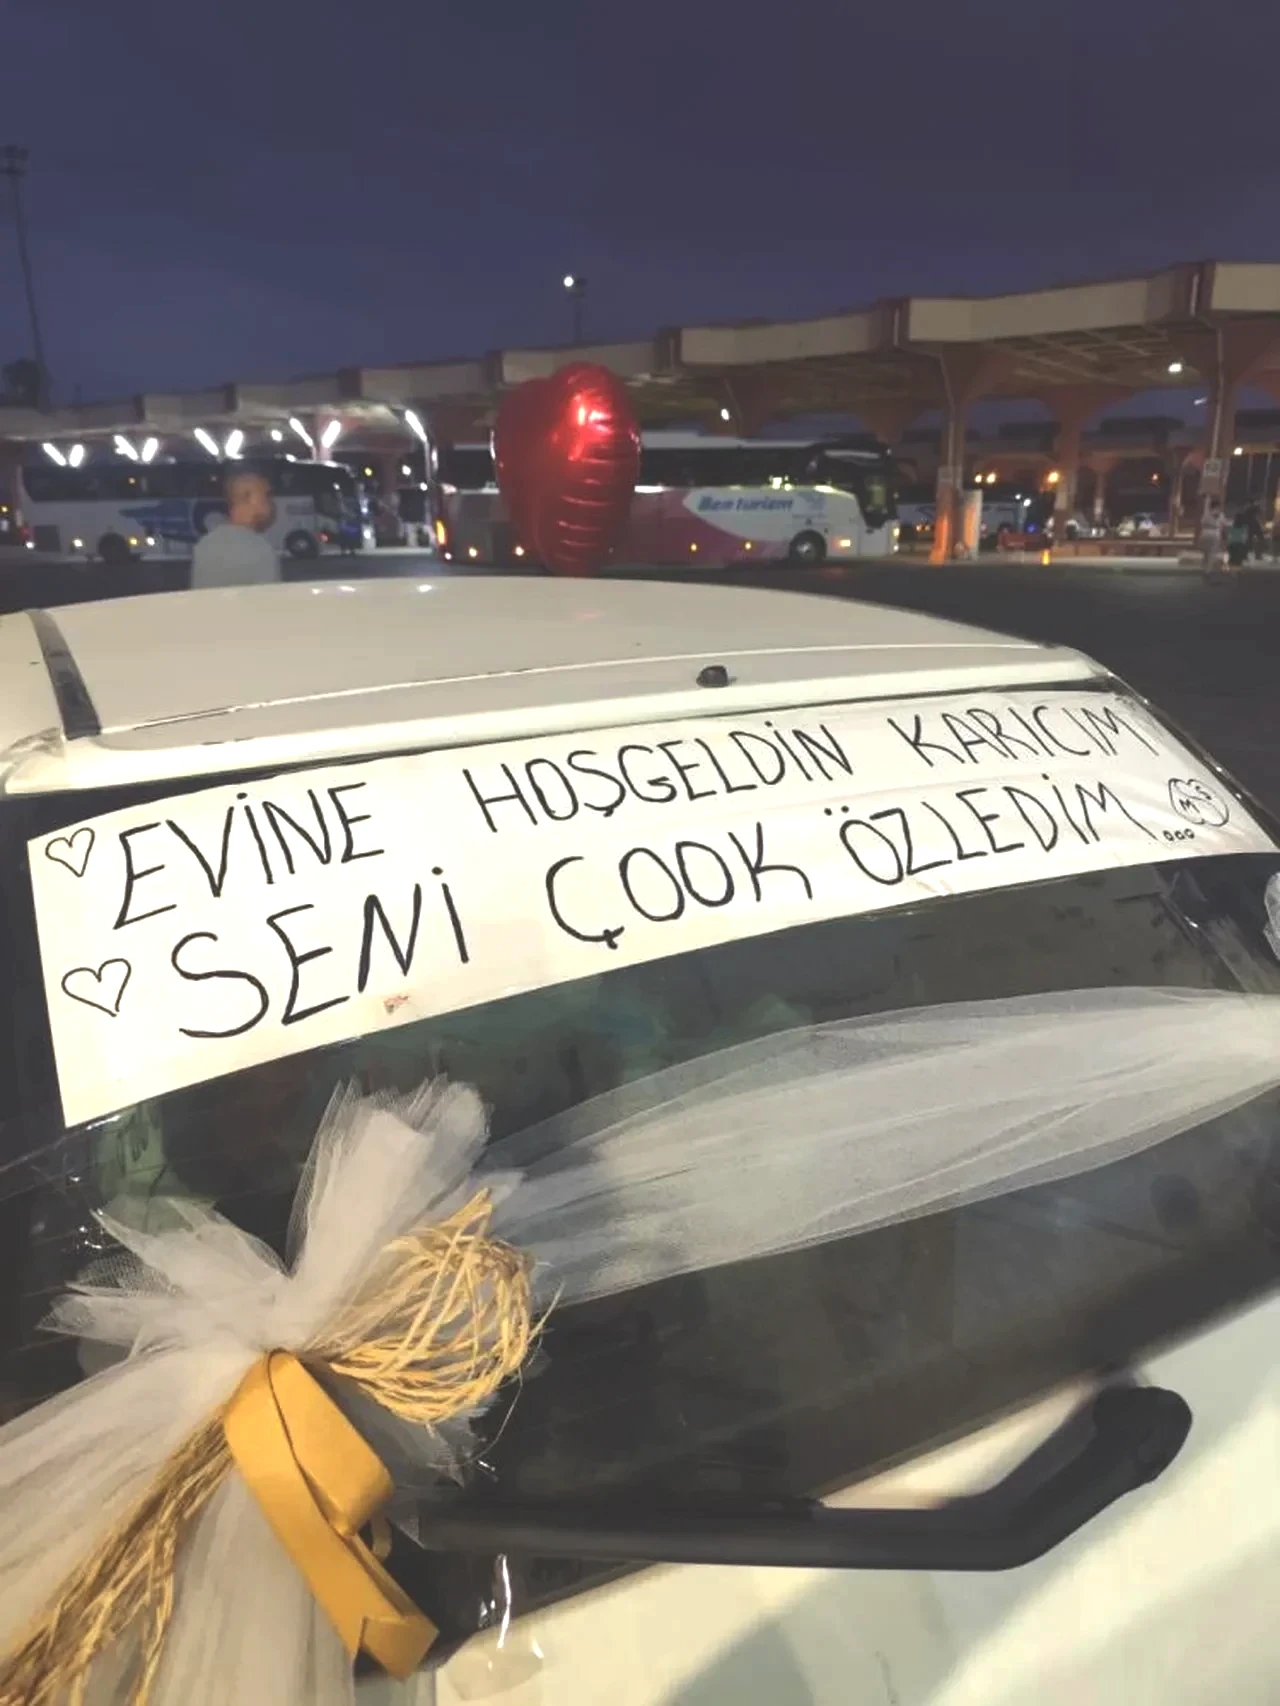 Ben turizm
EVİNE HOŞGELDİN KARICIM
SENİ ÇOOK ÖZLEDİM...
M S